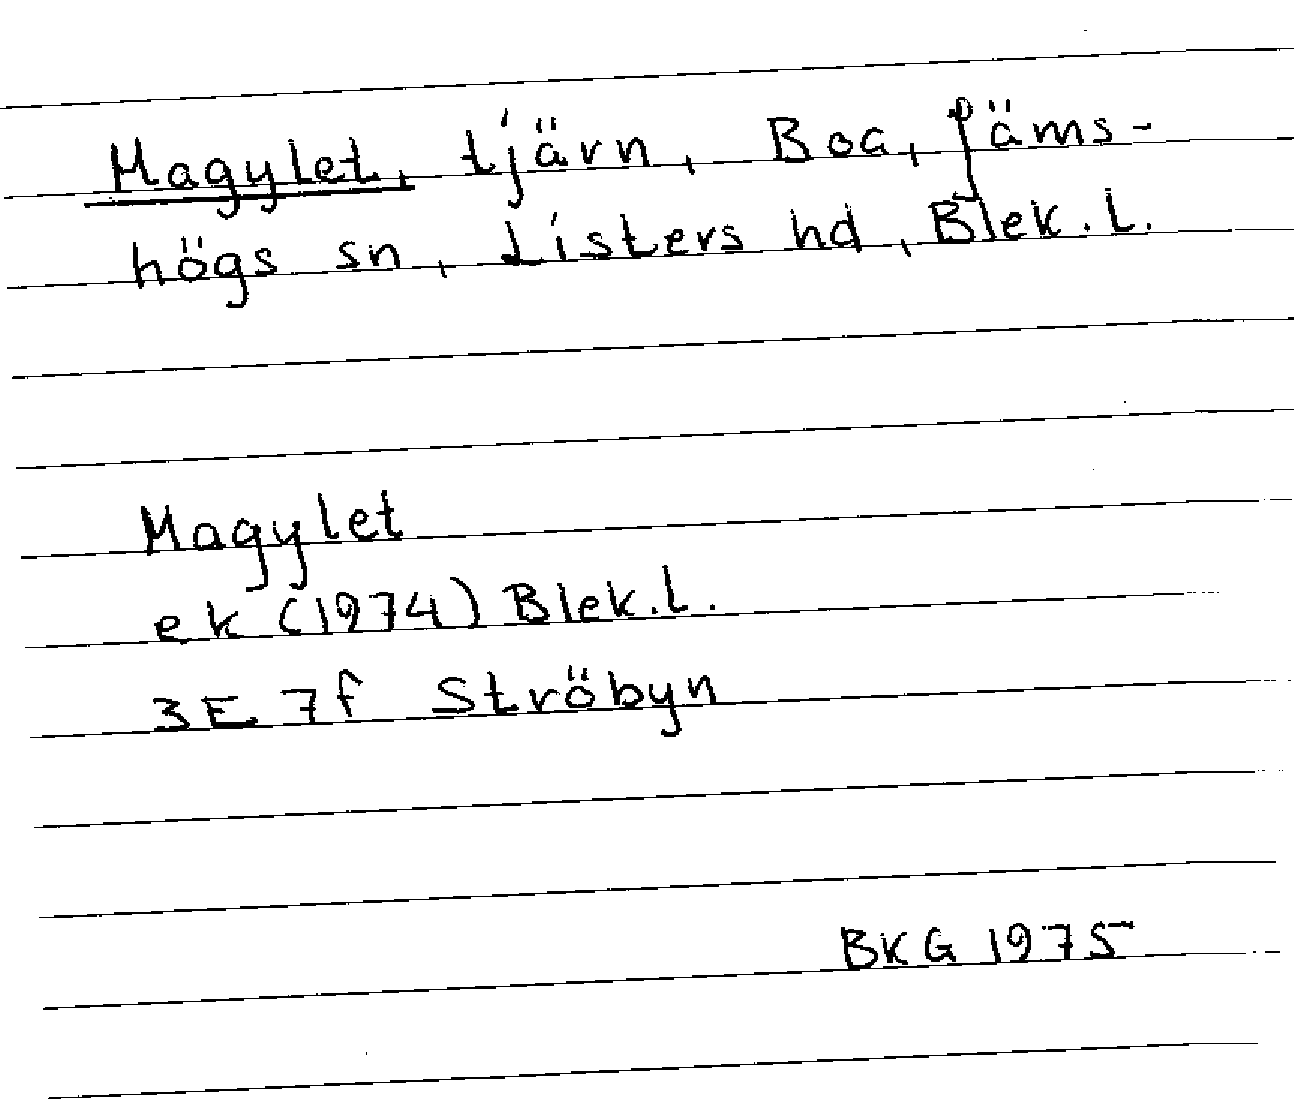 Magylet, tjärn, Boa, Jäms-
högs sn, Listers hd, Blek. l.
Magylet
ek (1974) Blek. l.
3E 7f Ströbyn
BKG 1975